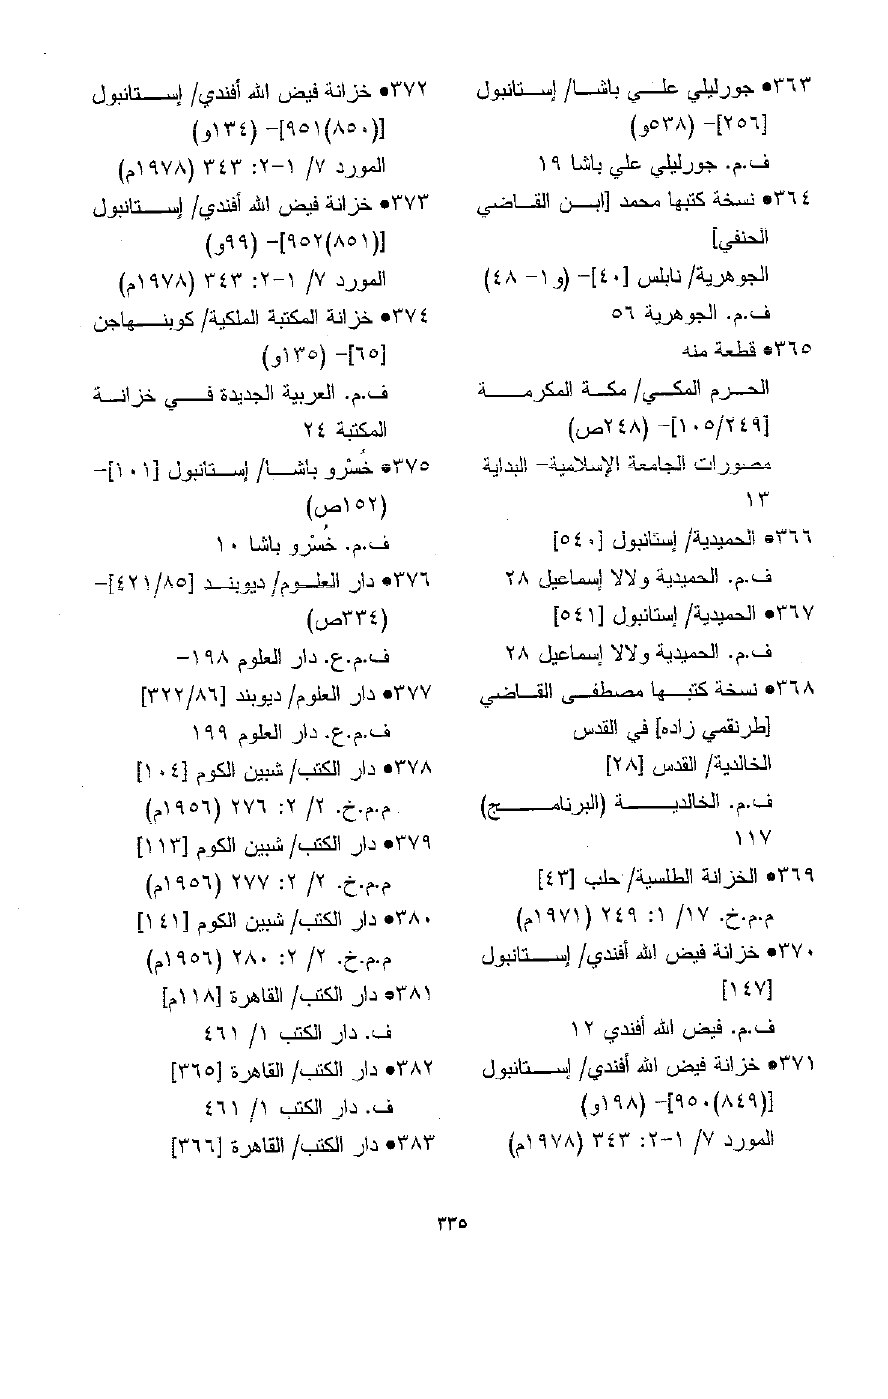 ٣٦٣• جورليلي علي باشا/ إستانبول
[٢٥٦]- (٥٣٨و)
ف.م. جورليلي علي باشا ١٩
٣٦٤• نسخة كتبها محمد [ابن القاضي
الحنفي]
الجوهرية/ نابلس [٤٠]- (و١- ٤٨)
ف.م. الجوهرية ٥٦
٣٦٥• قطعة منه
الحرم المكي/ مكة المكرمة
[١٠٥/٢٤٩]- (٢٤٨ص)
مصورات الجامعة الإسلامية- البداية
١٣
٣٦٦• الحميدية/ إستانبول [٥٤٠]
ف.م. الحميدية ولالا إسماعيل ٢٨
٣٦٧• الحميدية/ إستانبول [٥٤١]
ف.م. الحميدية ولالا إسماعيل ٢٨
٣٦٨• نسخة كتبها مصطفى القاضي
[طرنقمي زاده] في القدس
الخالدية/ القدس [٢٨]
ف.م. الخالدية (البرنامج)
١١٧
٣٦٩• الخزانة الطلسية/ حلب [٤٣]
م.م.خ. ١٧/ ١: ٢٤٩ (١٩٧١م)
٣٧٠• خزانة فيض الله أفندي/ إستانبول
[١٤٧]
ف.م. فيض الله أفندي ١٢
٣٧١• خزانة فيض الله أفندي/ إستانبول
[(٨٤٩)٩٥٠]- (١٩٨و)
المورد ٧/ ١-٢: ٣٤٣ (١٩٧٨م)
٣٧٢• خزانة فيض الله أفندي/ إستانبول
[(٨٥٠)٩٥١]- (١٣٤و)
المورد ٧/ ١-٢: ٣٤٣ (١٩٧٨م)
٣٧٣• خزانة فيض الله أفندي/ إستانبول
[(٨٥١)٩٥٢]- (٩٩و)
المورد ٧/ ١-٢: ٣٤٣ (١٩٧٨م)
٣٧٤• خزانة المكتبة الملكية/ كوبنهاجن
[٦٥]- (١٣٥و)
ف.م. العربية الجديدة في خزانة
المكتبة ٢٤
٣٧٥• خُسْرو باشا/ إستانبول [١٠١]-
(١٥٢ص)
ف.م. خُسْرو باشا ١٠
٣٧٦• دار العلوم/ ديوبند [٤٢١/٨٥]-
(٣٣٤ص)
ف.م.ع. دار العلوم ١٩٨-
٣٧٧• دار العلوم/ ديوبند [٣٢٢/٨٦]
ف.م.ع. دار العلوم ١٩٩
٣٧٨• دار الكتب/ شبين الكوم [١٠٤]
م.م.خ. ٢/ ٢: ٢٧٦ (١٩٥٦م)
٣٧٩• دار الكتب/ شبين الكوم [١١٣]
م.م.خ. ٢/ ٢: ٢٧٧ (١٩٥٦م)
٣٨٠• دار الكتب/ شبين الكوم [١٤١]
م.م.خ. ٢/ ٢: ٢٨٠ (١٩٥٦م)
٣٨١• دار الكتب/ القاهرة [١١٨م]
ف. دار الكتب ١/ ٤٦١
٣٨٢• دار الكتب/ القاهرة [٣٦٥]
ف. دار الكتب ١/ ٤٦١
٣٨٣• دار الكتب/ القاهرة [٣٦٦]
٣٣٥